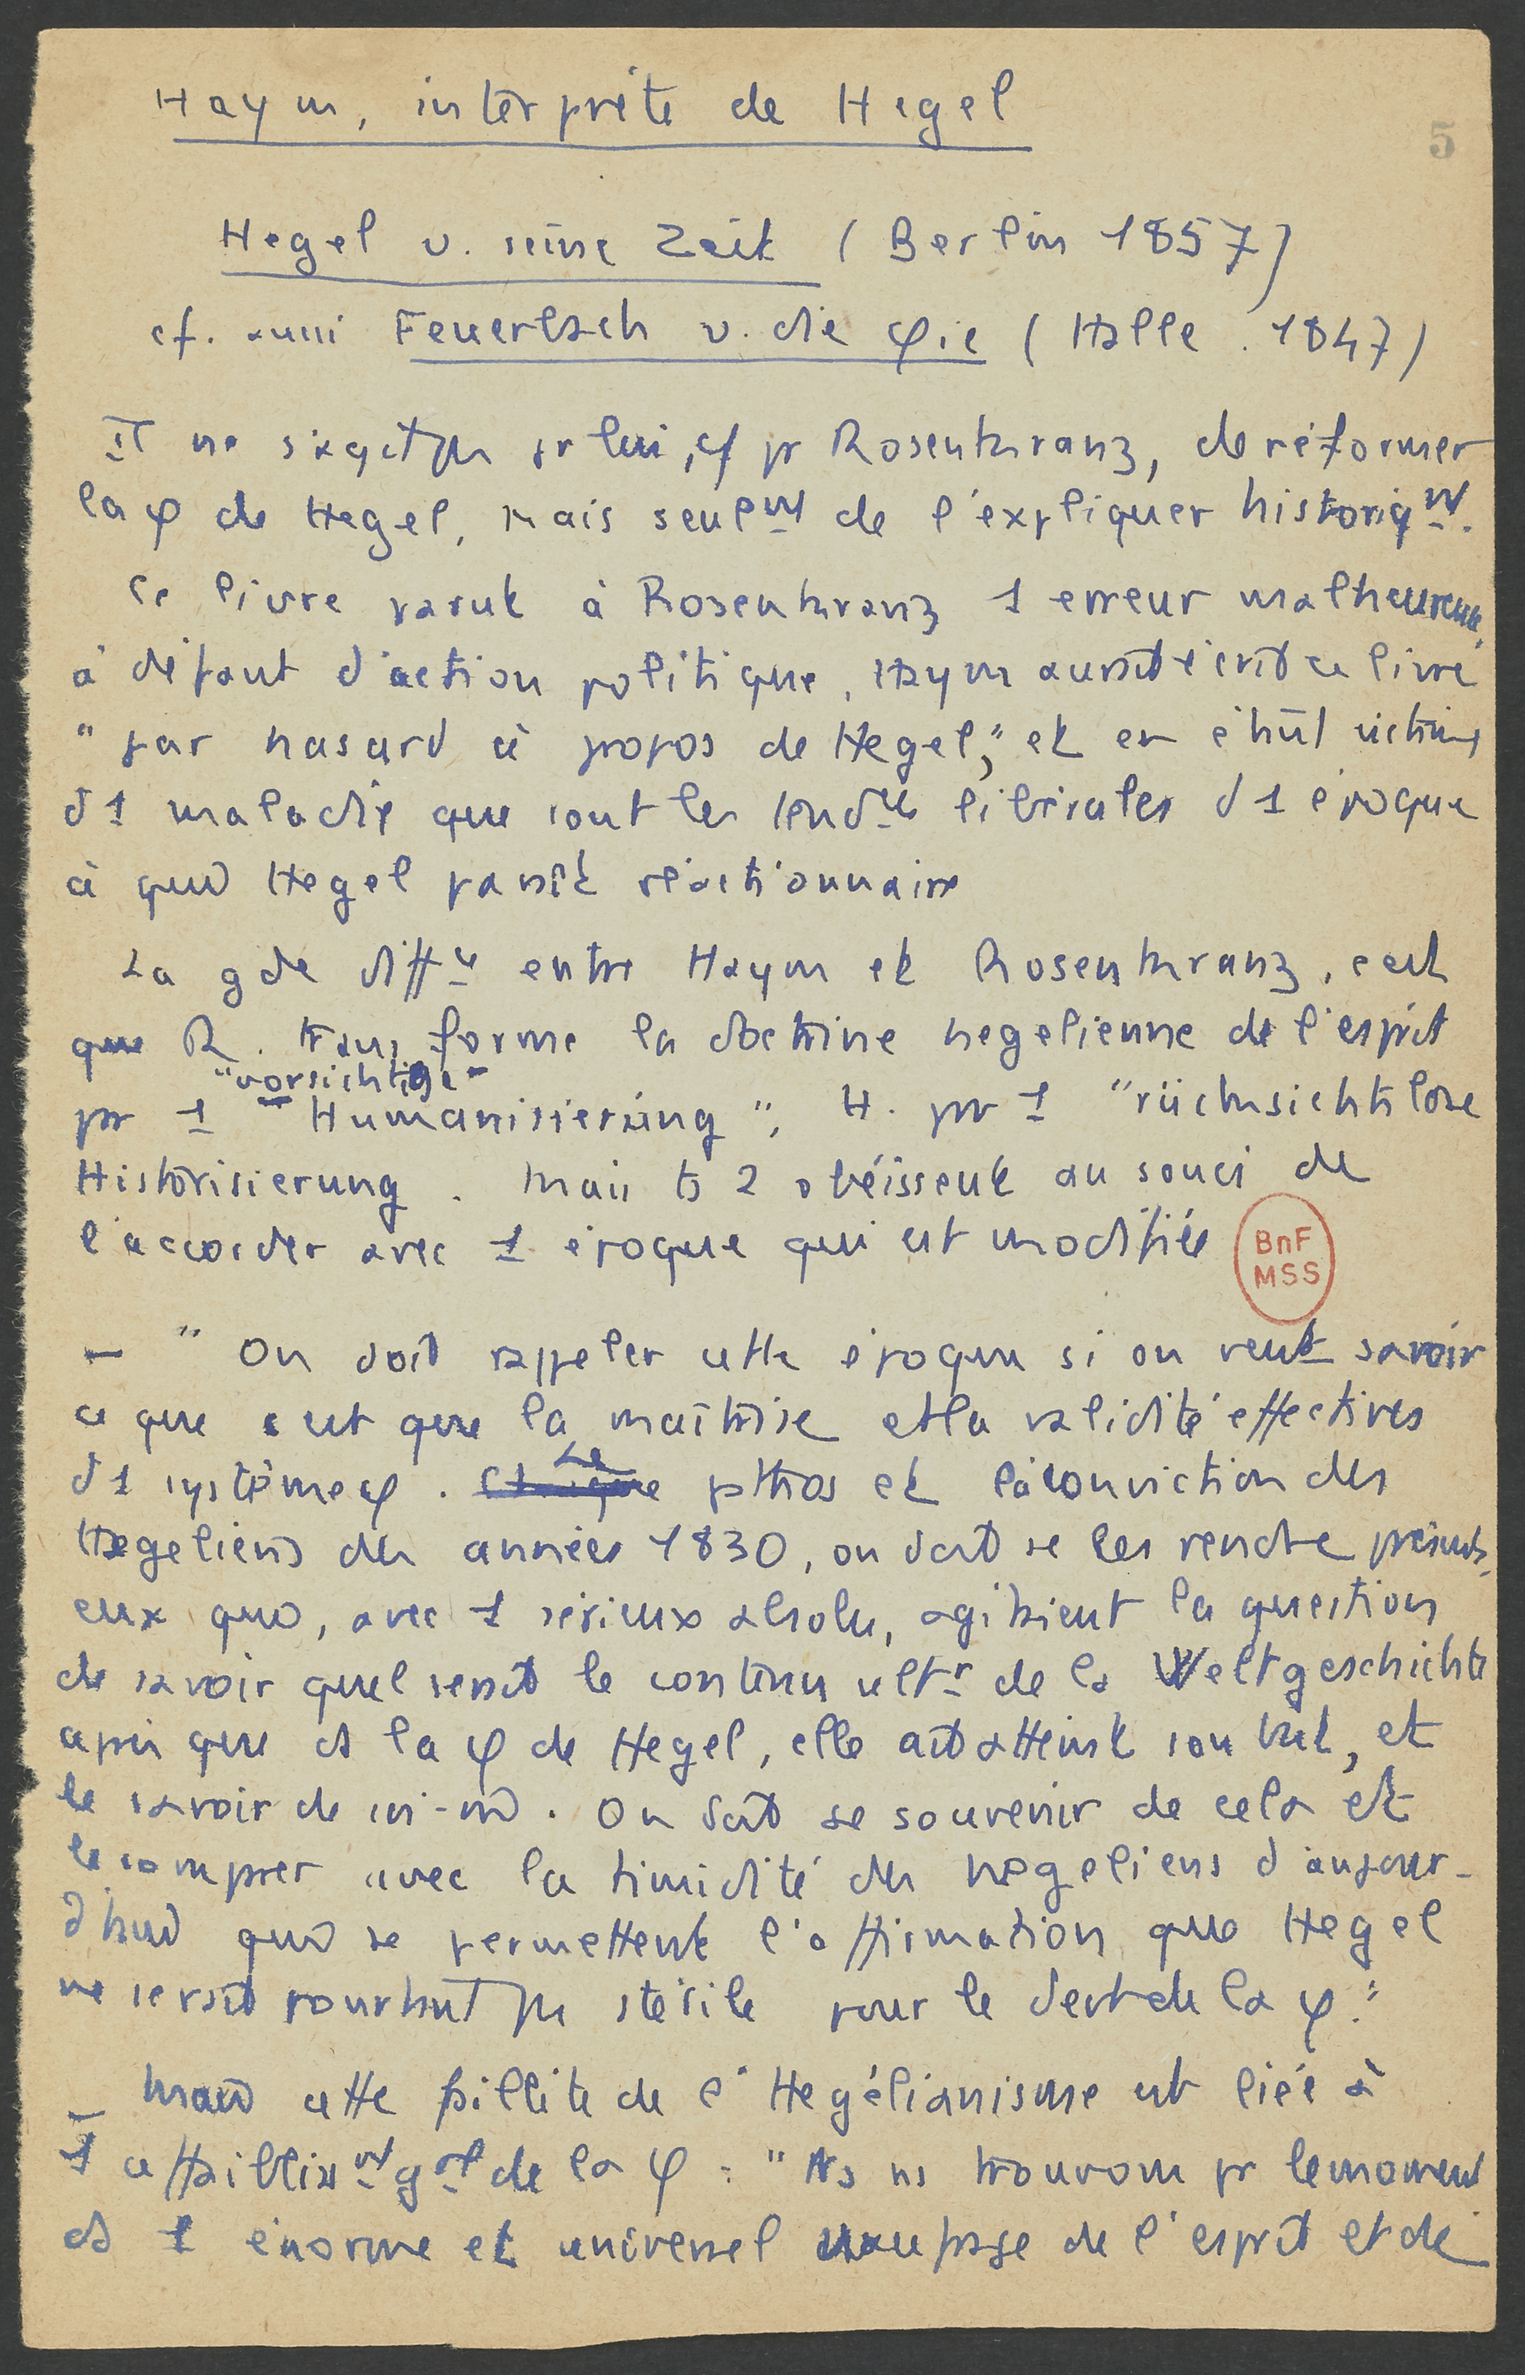 Haym, interprète de Hegel
5
Hegel u. seine Zeit (Berlin 1857)
cf. aussi Feuerbach u. die φie (Halle. 1847)
Il ne s'agit pas pr lui, cf pr Rosenkranz, de réformer
la φ de Hegel, mais seulmt de l'expliquer historiqmt.
Ce livre parut à Rosenkranz 1 erreur malheureuse,
à défaut d'action politique, Haym aurait écrit ce livre
"par hasard à propos de Hegel," et en était victime
d'1 maladie que sont les tendces libérales d'1 époque
à qui Hegel paraît réactionnaire
La gde diffce entre Haym et Rosenkranz, c'est
que R. transforme la doctrine hegelienne de l'esprit
"vorsichtige
pr 1 Humanisierung", H. pr 1 "rücksichtslose
Historisierung. Mais ts 2 obéissent au souci de
l'accorder avec 1 époque qui est modifiée
BnF
MSS
– "On doit rappeler cette époque si on veut savoir
ce que c'est que la maîtrise et la validité effectives
d'1 système φ. Le pathos et la conviction des
Hegeliens des années 1830, on doit se les rendre présents,
eux qui, avec 1 sérieux absolu, agitaient la question
de savoir quel serait le contenu ultr de la Weltgeschichte
après que ds la φ de Hegel, elle ait atteint son but, et
le savoir de soi-m. On doit se souvenir de cela et
le comparer avec la timidité des hegeliens d'aujour-
d'hui qui se permettent l'affirmation que Hegel
ne serait pourtant pas stérile pour le devt de la φ."
– Mais cette faillite de l'Hegélianisme est liée à
1 affaiblissmt gal de la φ : "Ns ns trouvons pr le moment
ds 1 énorme et universel naufrage de l'esprit et de